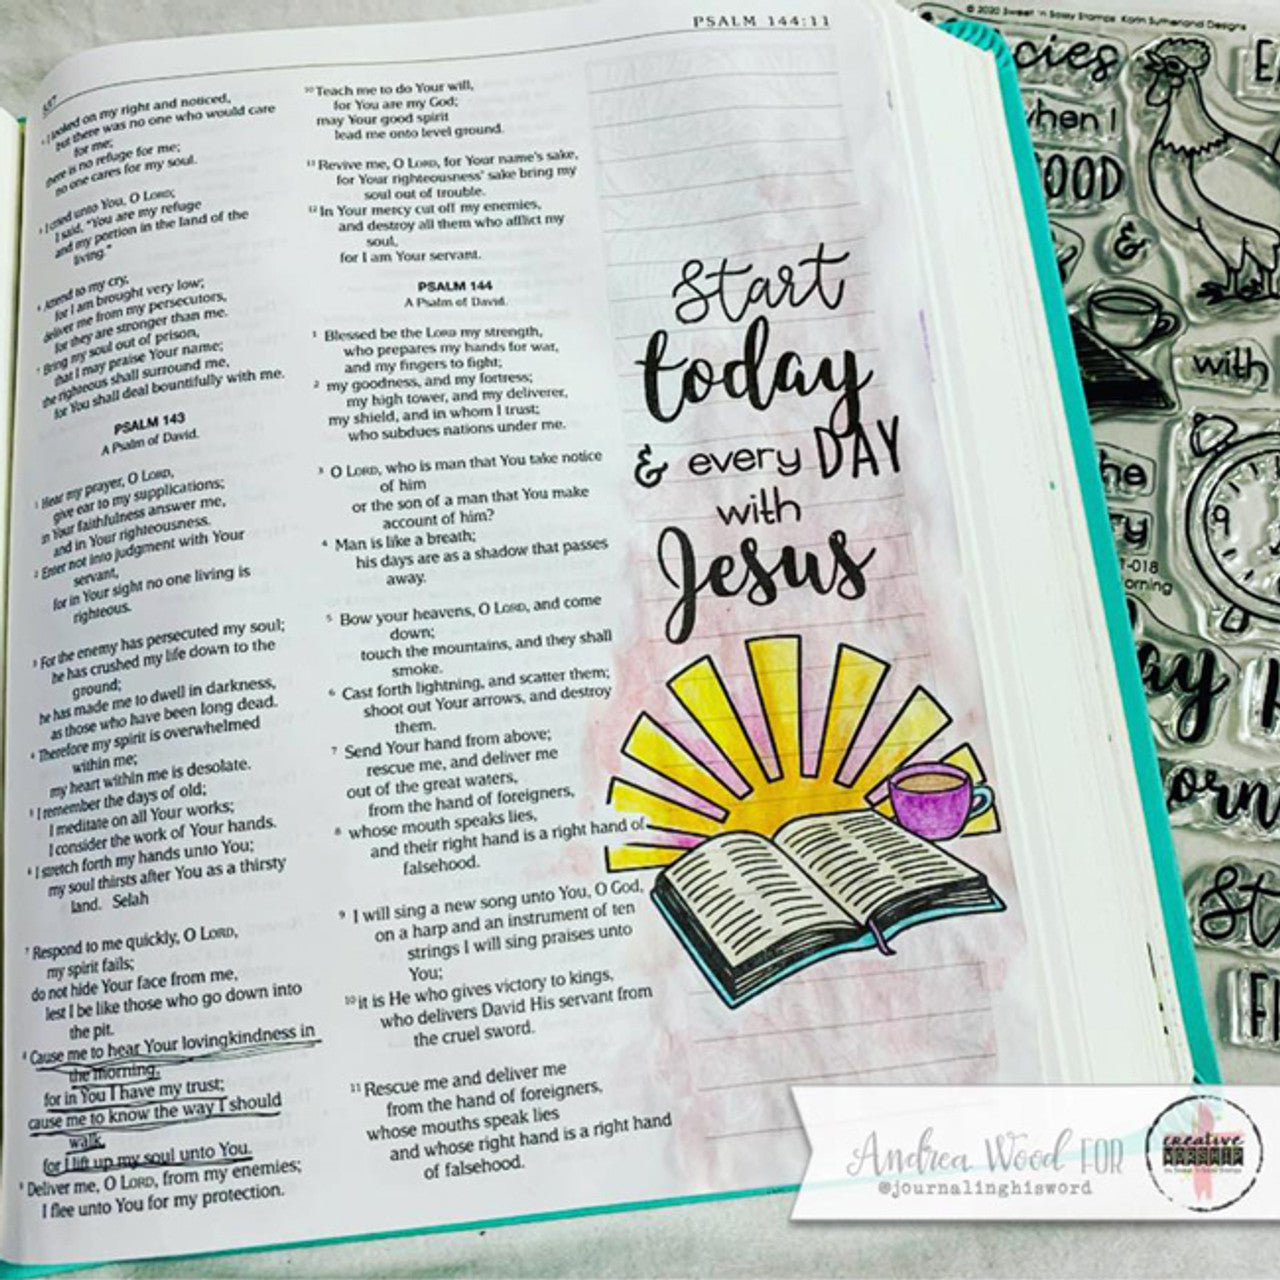 PSALM 144:11
557
⁴ I looked on my right and noticed,
but there was no one who would care
for me;
there is no refuge for me;
no one cares for my soul.
⁵ I cried unto You, O LORD;
I said, "You are my refuge
and my portion in the land of the
living."
⁶ Attend to my cry,
for I am brought very low;
deliver me from my persecutors,
for they are stronger than me.
⁷ Bring my soul out of prison,
that I may praise Your name;
the righteous shall surround me,
for You shall deal bountifully with me.
PSALM 143
A Psalm of David.
¹ Hear my prayer, O LORD,
give ear to my supplications;
in Your faithfulness answer me,
and in Your righteousness.
² Enter not into judgment with Your
servant,
for in Your sight no one living is
righteous.
³ For the enemy has persecuted my soul;
he has crushed my life down to the
ground;
he has made me to dwell in darkness,
as those who have been long dead.
⁴ Therefore my spirit is overwhelmed
within me;
my heart within me is desolate.
⁵ I remember the days of old;
I meditate on all Your works;
I consider the work of Your hands.
⁶ I stretch forth my hands unto You;
my soul thirsts after You as a thirsty
land. Selah
⁷ Respond to me quickly, O LORD,
my spirit fails;
do not hide Your face from me,
lest I be like those who go down into
the pit.
⁸ Cause me to hear Your lovingkindness in
the morning,
for in You I have my trust;
cause me to know the way I should
walk,
for I lift up my soul unto You.
⁹ Deliver me, O LORD, from my enemies;
I flee unto You for my protection.
¹⁰ Teach me to do Your will,
for You are my God;
may Your good spirit
lead me onto level ground.
¹¹ Revive me, O LORD, for Your name's sake,
for Your righteousness' sake bring my
soul out of trouble.
¹² In Your mercy cut off my enemies,
and destroy all them who afflict my
soul,
for I am Your servant.
PSALM 144
A Psalm of David.
¹ Blessed be the LORD my strength,
who prepares my hands for war,
and my fingers to fight;
² my goodness, and my fortress;
my high tower, and my deliverer,
my shield, and in whom I trust;
who subdues nations under me.
³ O LORD, who is man that You take notice
of him
or the son of a man that You make
account of him?
⁴ Man is like a breath;
his days are as a shadow that passes
away.
⁵ Bow your heavens, O LORD, and come
down;
touch the mountains, and they shall
smoke.
⁶ Cast forth lightning, and scatter them;
shoot out Your arrows, and destroy
them.
⁷ Send Your hand from above;
rescue me, and deliver me
out of the great waters,
from the hand of foreigners,
⁸ whose mouth speaks lies,
and their right hand is a right hand of
falsehood.
⁹ I will sing a new song unto You, O God,
on a harp and an instrument of ten
strings I will sing praises unto
You;
¹⁰ it is He who gives victory to kings,
who delivers David His servant from
the cruel sword.
¹¹ Rescue me and deliver me
from the hand of foreigners,
whose mouths speak lies
and whose right hand is a right hand
of falsehood.
Start
today
& every DAY
with
Jesus
© 2020 Sweet 'n Sassy Stamps Karin Sutherland Designs
cies
when I
OOD
&
with
he
9
ry
T-018
orning
ay
orn
St
Andrea Wood FOR
@journalinghisword
creative
WORSHIP